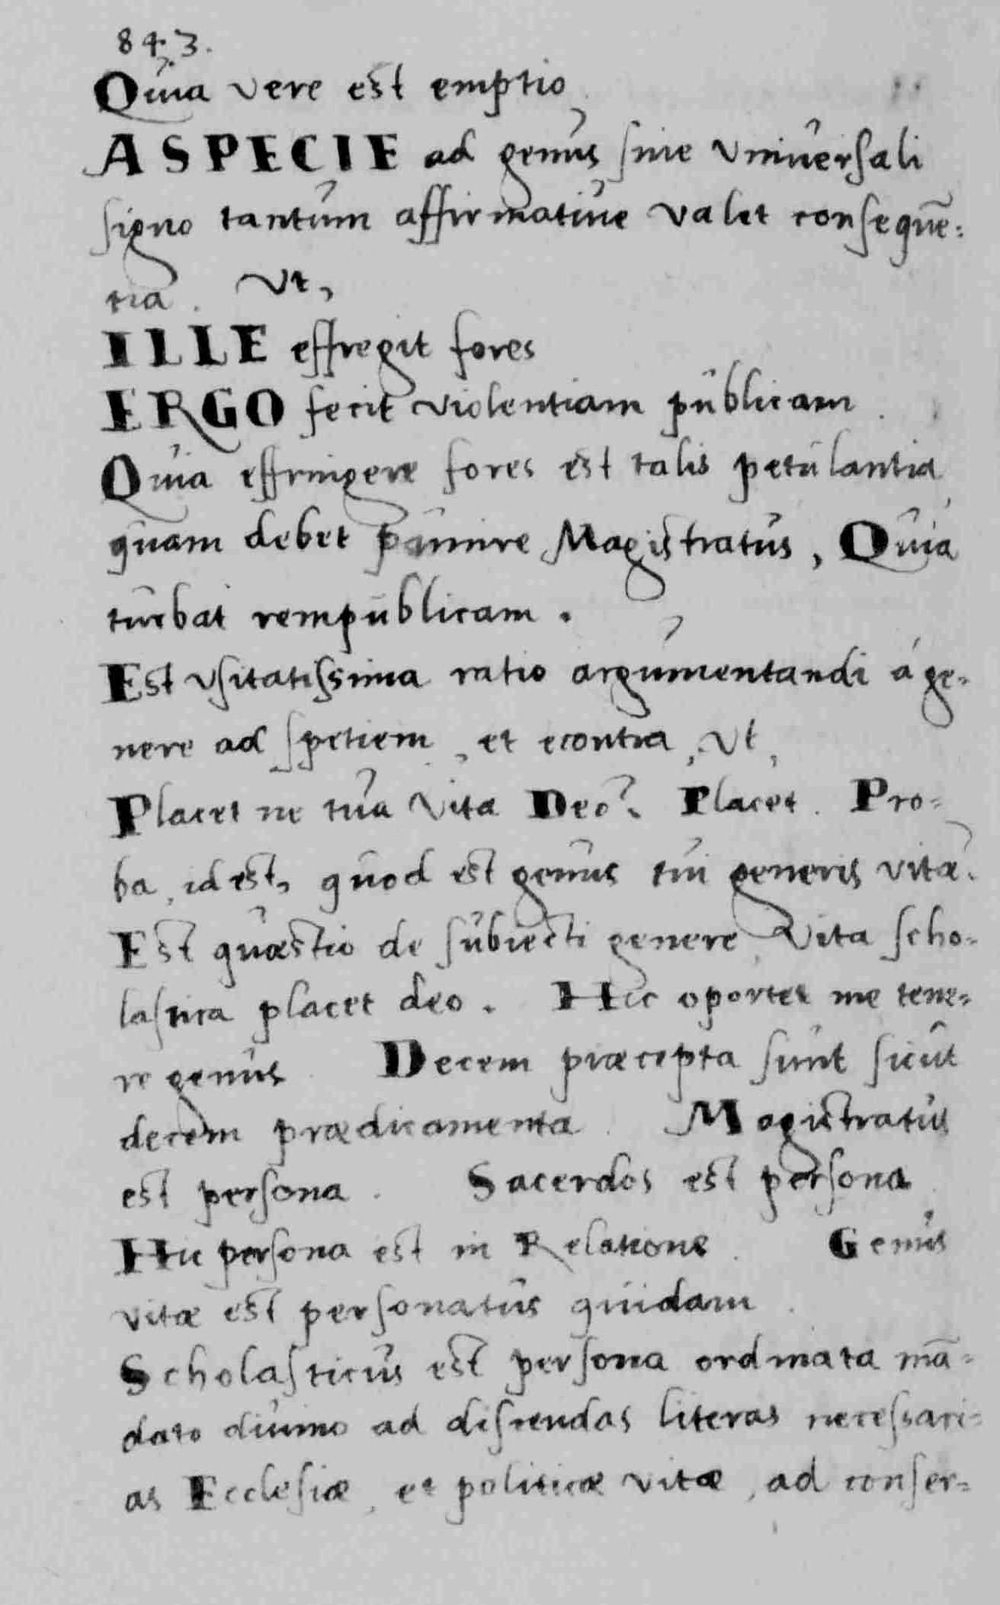 843.
Quia vere est emptio.
A SPECIE ad genus sine vniuersali
signo tantum affirmatiue valet consequē:
tia. Vt,
ILLE effregit fores
ERGO fecit violentiam publicam.
Quia effringere fores est talis petulantia
quam debet punire Magistratus, Quia
turbat rempublicam.
Est vsitatissima ratio argumentandi á ge-
nere ad spetiem, et econtra, Vt,
Placet ne tua vita Deo? Placet. Pro-
ba, id est, quod est genus tui generis vitæ.
Est quæstio de subiecti genere, Vita scho-
lastica placet deo. Hic oportet me tene-
re genus. Decem præcepta sunt sicut
decem prædicamenta. Magistratus
est persona. Sacerdos est persona
Hic persona est in Relatione. Genus
vitæ est personatus quidam.
Scholasticus est persona ordinata mā-
dato diuino ad discendas literas necessari-
as Ecclesiæ, et politicæ vitæ, ad conser-